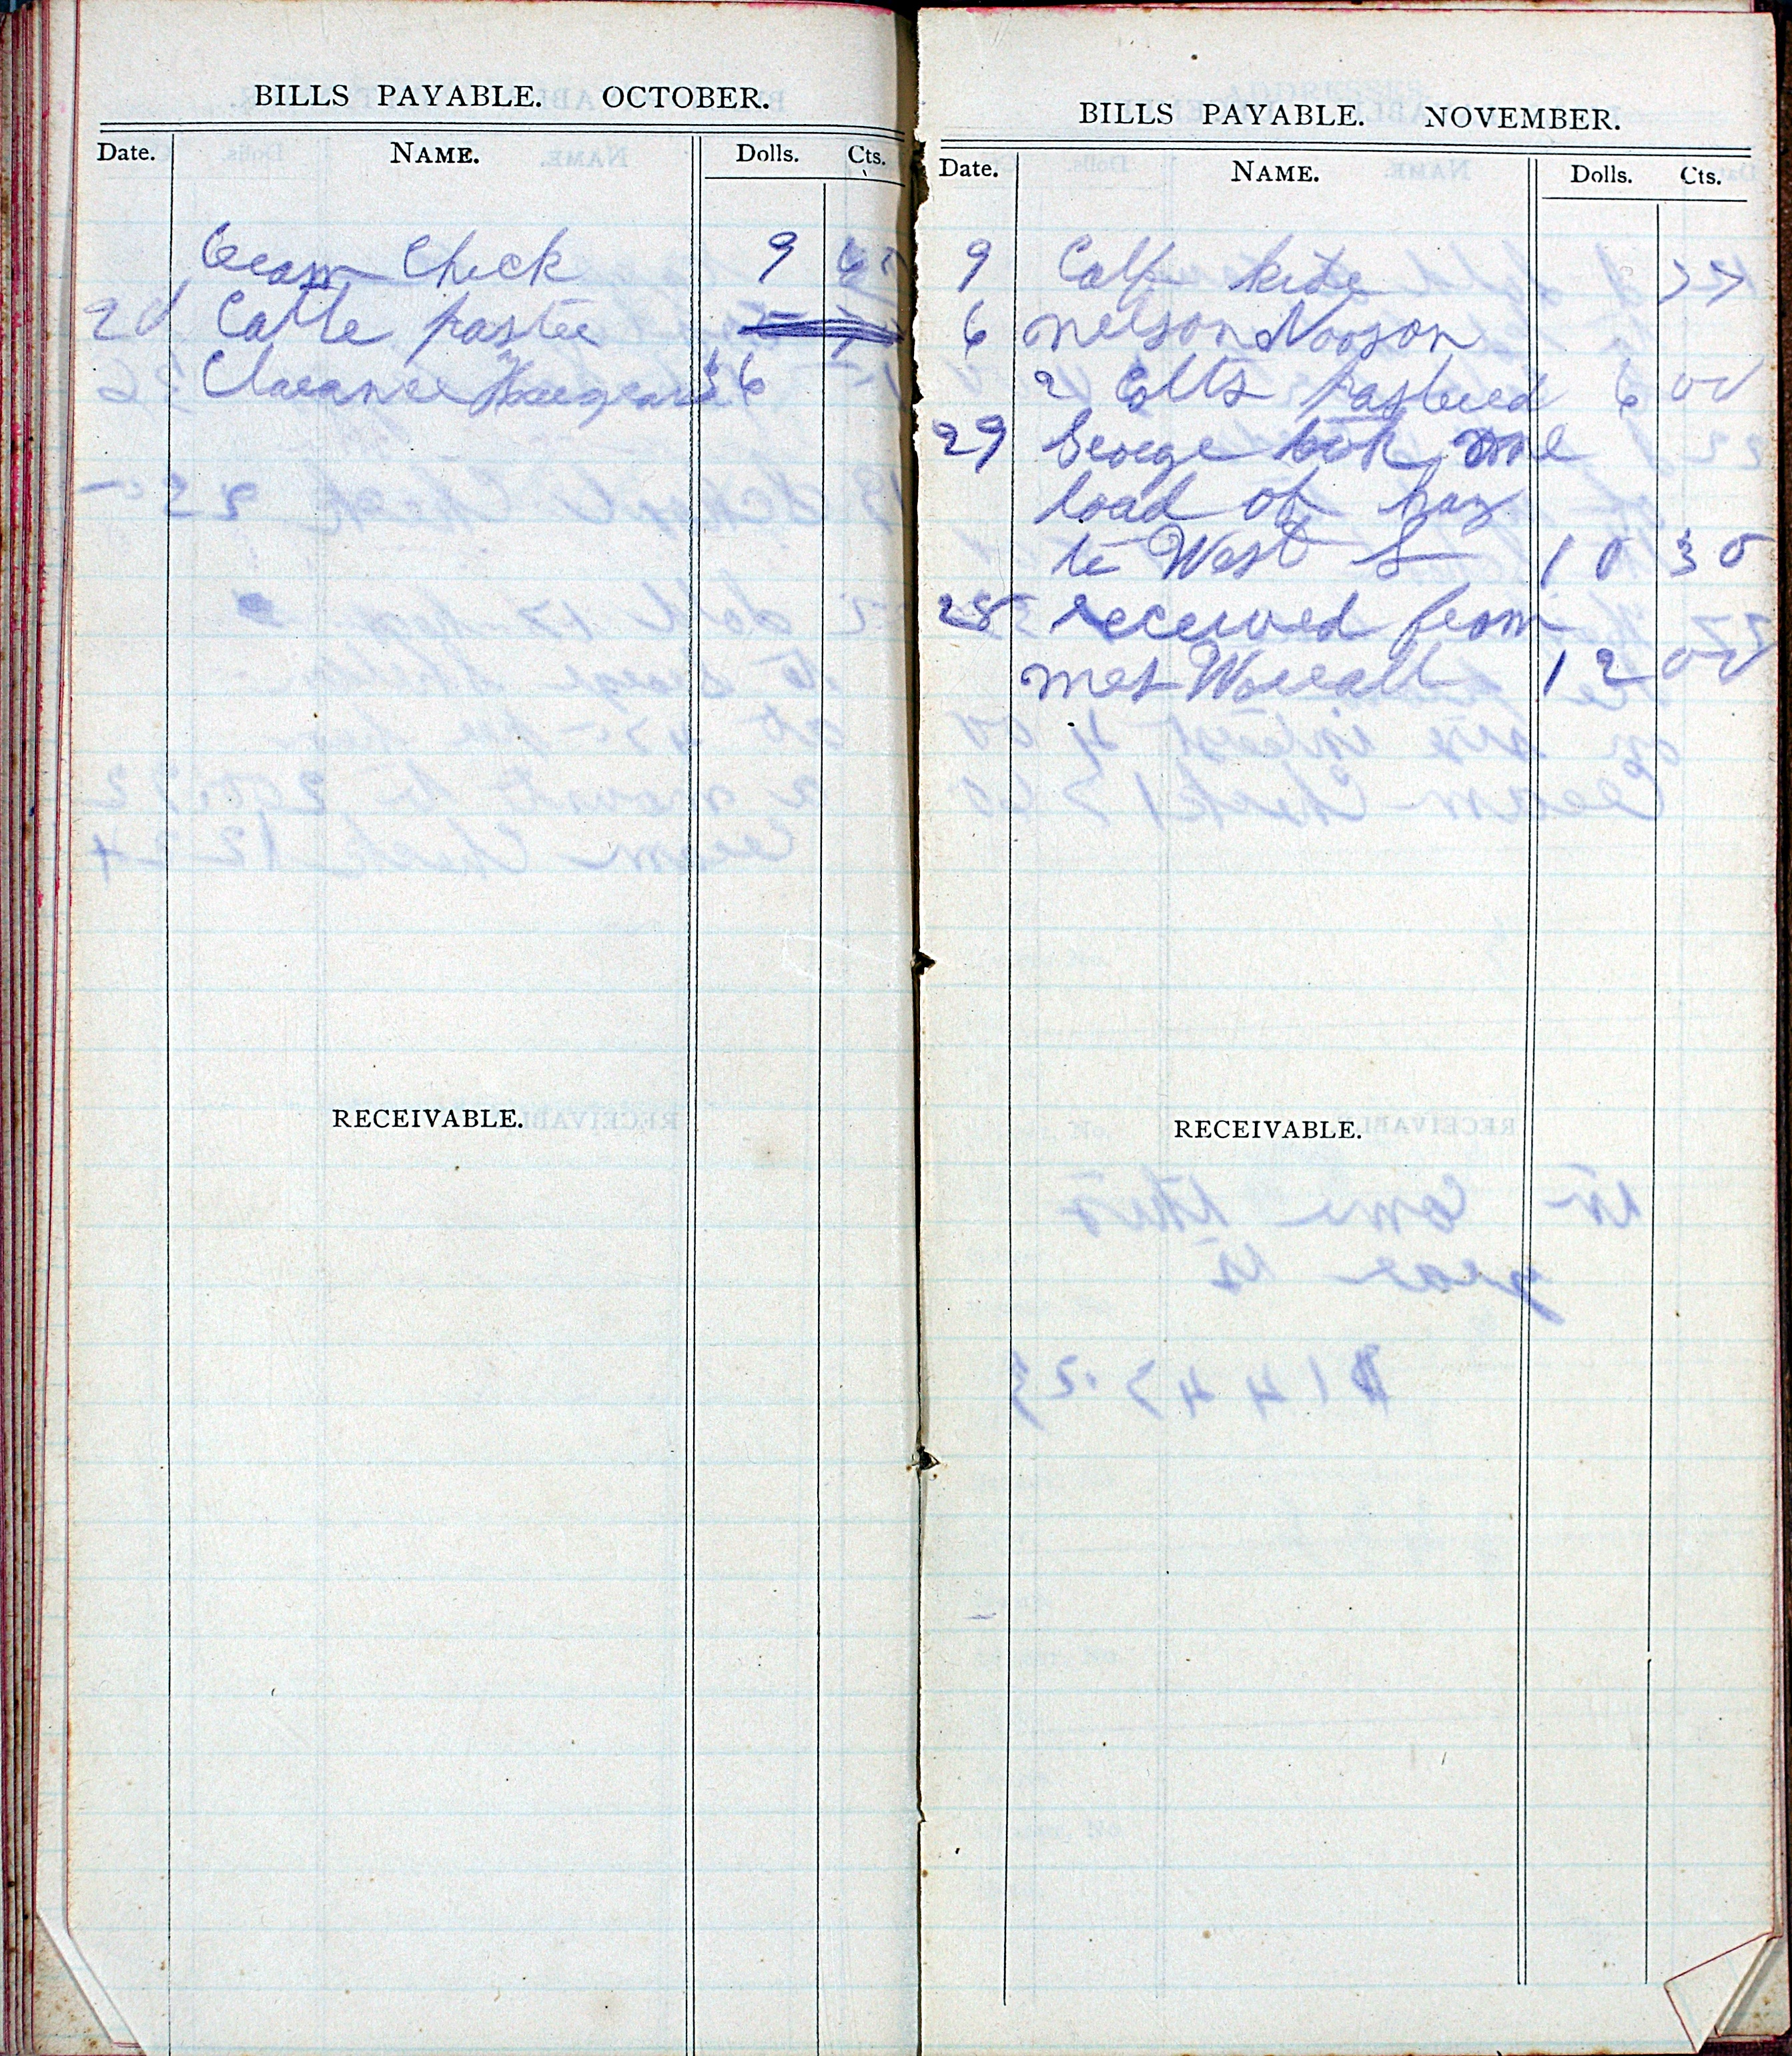 BILLS PAYABLE. OCTOBER.
Date. NAME. Dolls. Cts.
Cream Check 9
20 Cattle pastee
Clarance $6
RECEIVABLE.
BILLS PAYABLE. NOVEMBER.
Date. NAME. Dolls. Cts.
9 Calf hide 77
6 Nelson
2 Colts pastured 6 00
29 George took one
load of hay
to West S 10 30
28 received from
mrs Worrall 12 00
RECEIVABLE.